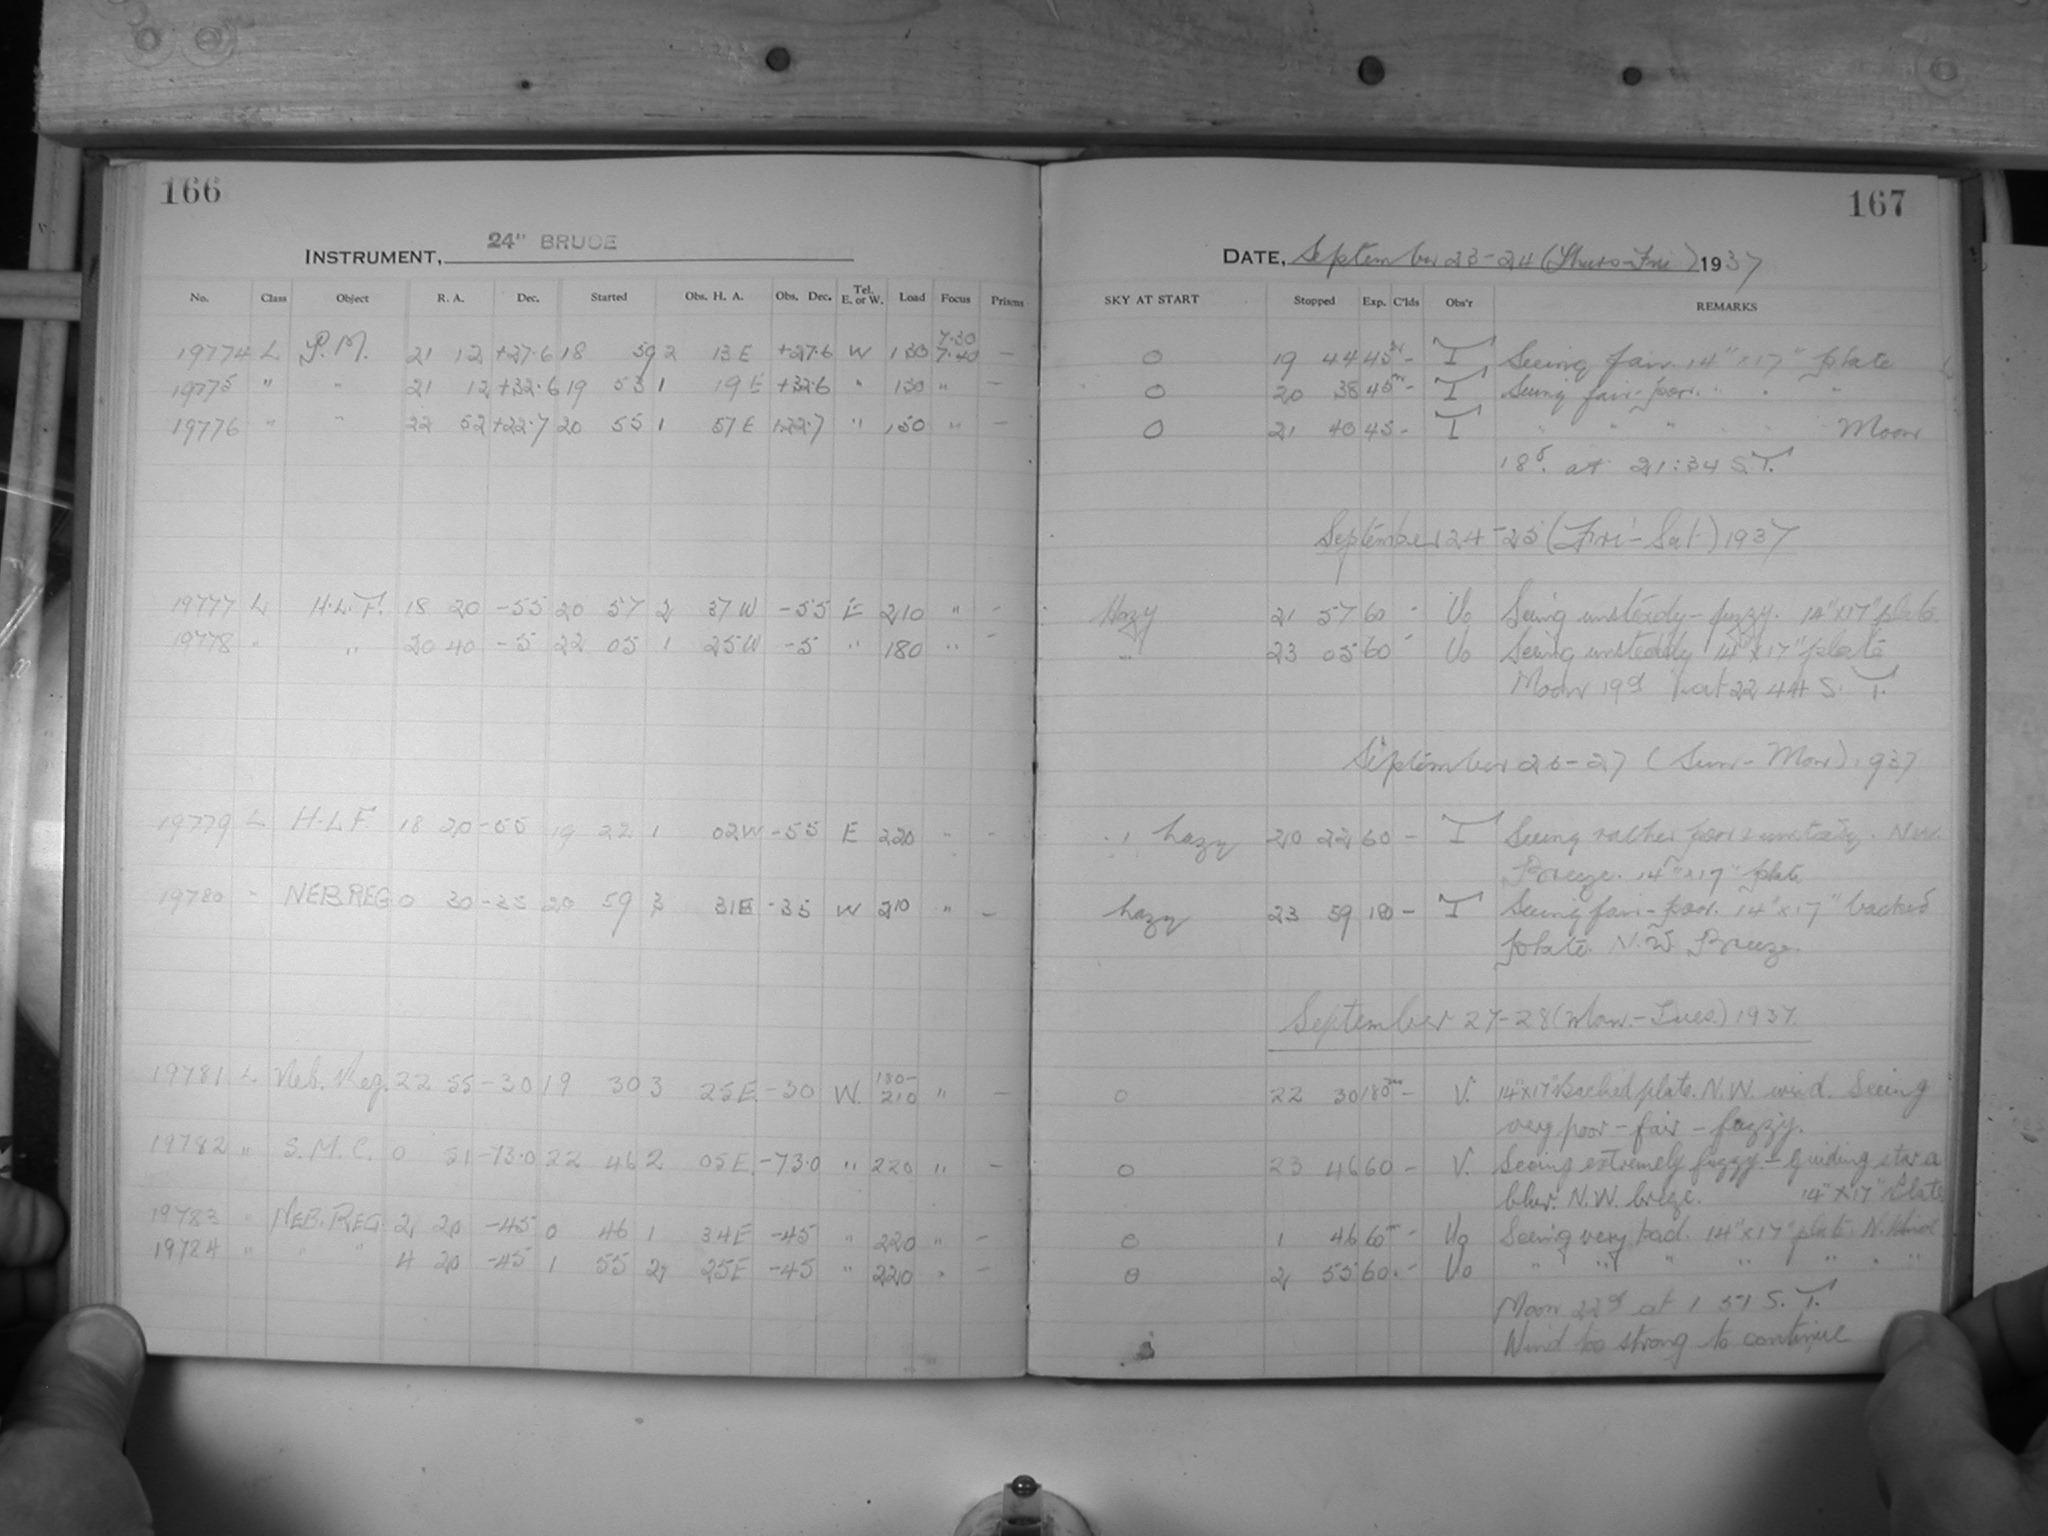 166
INSTRUMENT, 24" BRUCE
No. Class Object R. A. Dec. Started Obs. H. A. Obs. Dec. Tel. E. or W. Load Focus Prisms
19774 L P.M. 21 12 +27.6 18 59 2 13 E +27.6 W 130 7.30 7.40 —
19775 " " 21 12 +32.6 19 53 1 19 E +32.6 " 130 " —
19776 " " 22 52 +22.7 20 55 1 57 E +22.7 " 130 " —
19777 L H.L.F. 18 20 -55 20 57 2 37 W -55 E 210 " -
19778 " " 20 40 -5 22 05 1 25 W -5 " 180 " -
19779 L H.L.F. 18 20 -55 19 22 1 02 W -55 E 220 " -
19780 " NEB.REG 0 30 -35 20 59 3 31 E -35 W 210 " —
19781 L Neb. Reg. 22 55 -30 19 30 3 25 E -30 W. 180-210 " —
19782 " S.M.C. 0 51 -73.0 22 46 2 05 E -73.0 " 220 " —
19783 " NEB.REG 2 20 -45 0 46 1 34 E -45 " 220 " —
19784 " " " 4 20 -45 1 55 2 25 E -45 " 220 " —
167
DATE, September 23-24 (Thurs-Fri) 1937
SKY AT START Stopped Exp. C'lds Obs'r REMARKS
0 19 44 45 - T Seeing fair. 14" x 17" plate
0 20 38 45 - T Seeing fair-poor. " " "
0 21 40 45 - T " " " Moon
18d. at 21:34 S.T.
September 24-25 (Fri-Sat) 1937
Hazy 21 57 60 - Vo Seeing unsteady - fuzzy. 14"x17" plate.
" 23 05 60 - Vo Seeing unsteady 14"x17" plate
Moon 19d at 22 44 S. T.
September 26-27 (Sun-Mon) 1937
hazy 20 22 60 - T Seeing rather poor & unsteady. N.W.
Breeze. 14"x17" plate
hazy 23 59 180 - T Seeing fair-poor. 14"x17" backed
plate. N.W Breeze.
September 27-28 (Mon.-Tues.) 1937.
0 22 30 180 - V. 14"x17" Backed plate. N.W. wind. Seeing
very poor - fair - fuzzy.
0 23 46 60 - V. Seeing extremely fuzzy - Guiding star a
blur. N.W. breze. 14"x17" Plate
0 1 46 60 - Vo Seeing very bad. 14"x17" plate N. Wind
0 2 55 60 - Vo " " " " " " "
Moon 22d at 1 51 S. T.
Wind too strong to continue